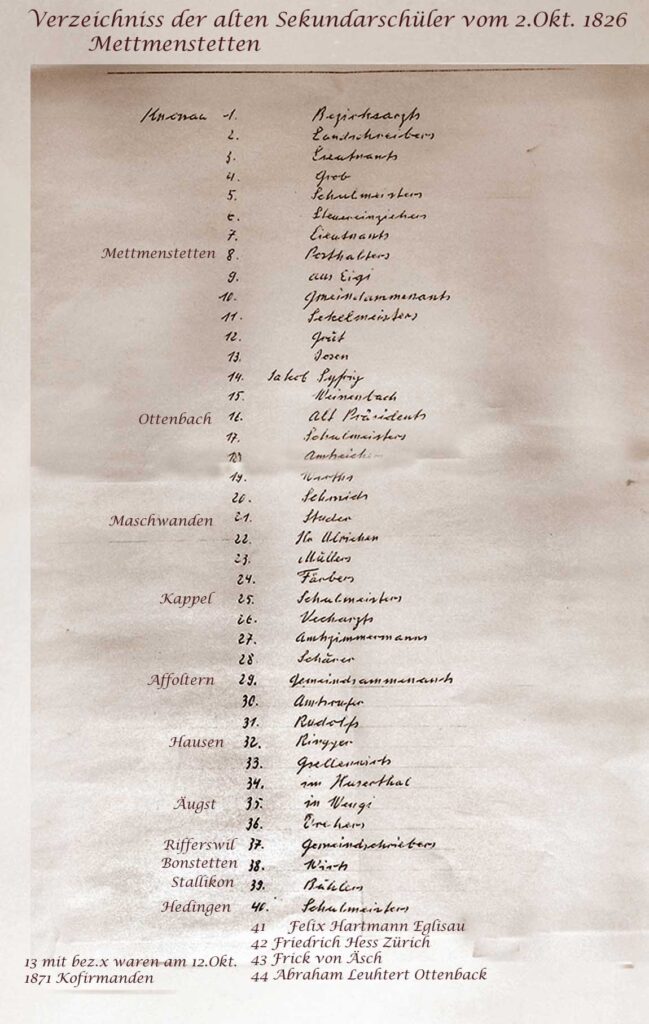 Verzeichniss der alten Sekundarschüler vom 2.Okt. 1826
Mettmenstetten
Knonau 1. Bezirksarzts
2. Landschreibers
3. Lieutnants
4. Grob
5. Schulmeisters
6. Steuereinziehers
7. Lieutnants
Mettmenstetten 8. Posthalters
9. aus Eigi
10. Gmeindammenants
11. Sekelmeisters
12. Grüt
13.
14. Jakob Syfrig
15. Weinenbach
Ottenbach 16. Alt Präsidents
17. Schulmeisters
18.
19. Wirths
20. Schmids
Maschwanden 21. Studer
22. Hs Ulrichen
23. Müllers
24. Färbers
Kappel 25. Schulmeisters
26. Viecharzts
27. Amtszimmermanns
28 Schärer
Affoltern 29. Gemeindsammenants
30.
31. Rudolfs
Hausen 32. Ringger
33. Gsellenwirts
34. im Huserthal
Äugst 35. in Wengi
36.
Rifferswil 37. Gemeindschriebers
Bonstetten 38. Wirts
Stallikon 39. Bühlers
Hedingen 40. Schulmeisters
41 Felix Hartmann Eglisau
42 Friedrich Hess Zürich
43 Frick von Äsch
44 Abraham Leuhtert Ottenback
13 mit bez.x waren am 12.Okt.
1871 Kofirmanden